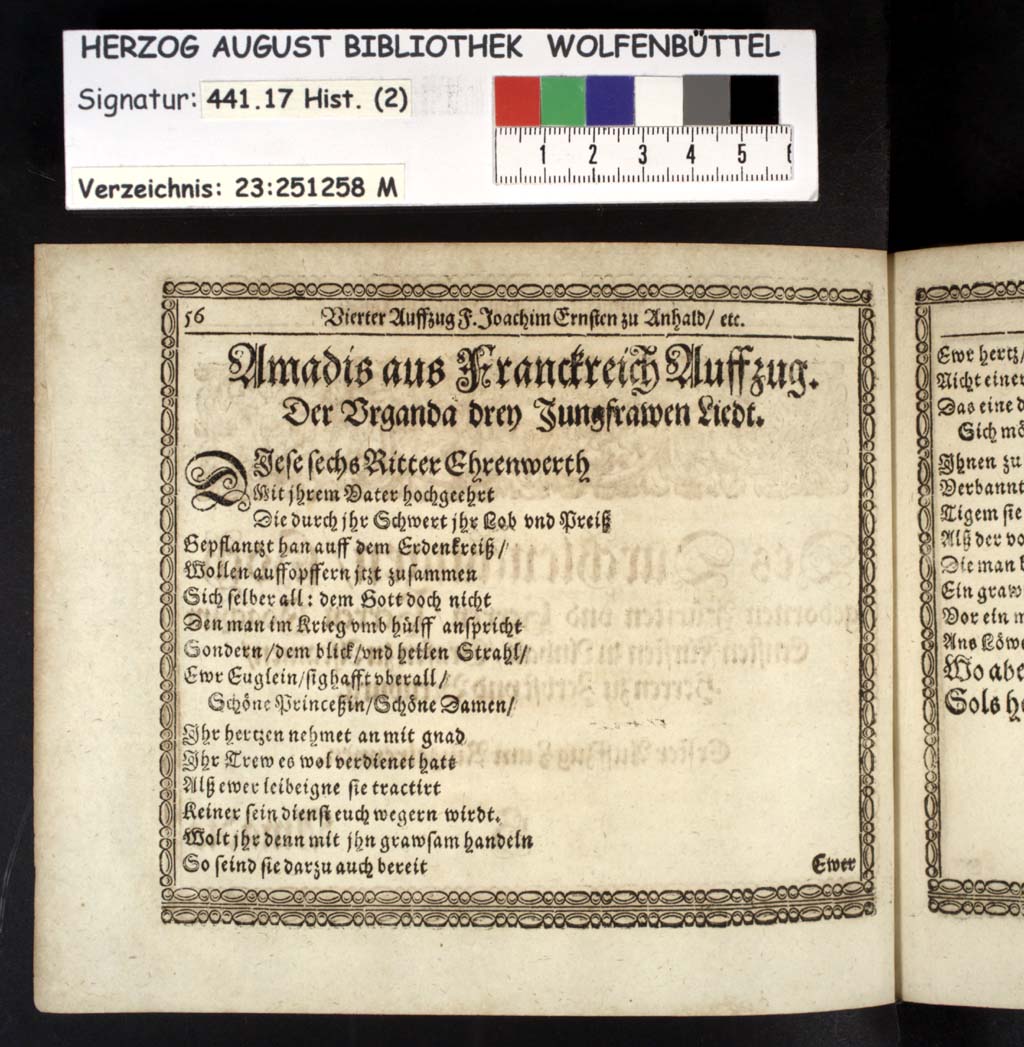 HERZOG AUGUST BIBLIOTHEK WOLFENBÜTTEL
Signatur: 441.17 Hist. (2)
1 2 3 4 5 6
Verzeichnis: 23:251258 M
56 Vierter Auffzug F. Joachim Ernsten zu Anhald/ etc.
Amadis aus Franckreich Auffzug.
Der Vrganda drey Jungfrawen Liedt.
DIese sechs Ritter Ehrenwerth
Mit jhrem Vater hochgeehrt
Die durch jhr Schwert jhr Lob vnd Preiß
Gepflantzt han auff dem Erdenkreiß/
Wollen auffopffern jtzt zusammen
Sich selber all: dem Gott doch nicht
Den man im Krieg vmb hülff anspricht
Sondern/dem blick/vnd hellen Strahl/
Ewr Euglein/sighafft vberall/
Schöne Princeßin/Schöne Damen/
Ihr hertzen nehmet an mit gnad
Ihr Trew es wol verdienet hatt
Alß ewer leibeigne sie tractirt
Keiner sein dienst euch wegern wirdt.
Wolt jhr denn mit jhn grawsam handeln
So seind sie darzu auch bereit
Ewer
Ewr hertz/
Nicht einer
Das eine
Sich
Ihnen zu
Verbannt
Tigem sie
Alß der
Die man
Ein
Vor ein
Ans
Wo
Sols